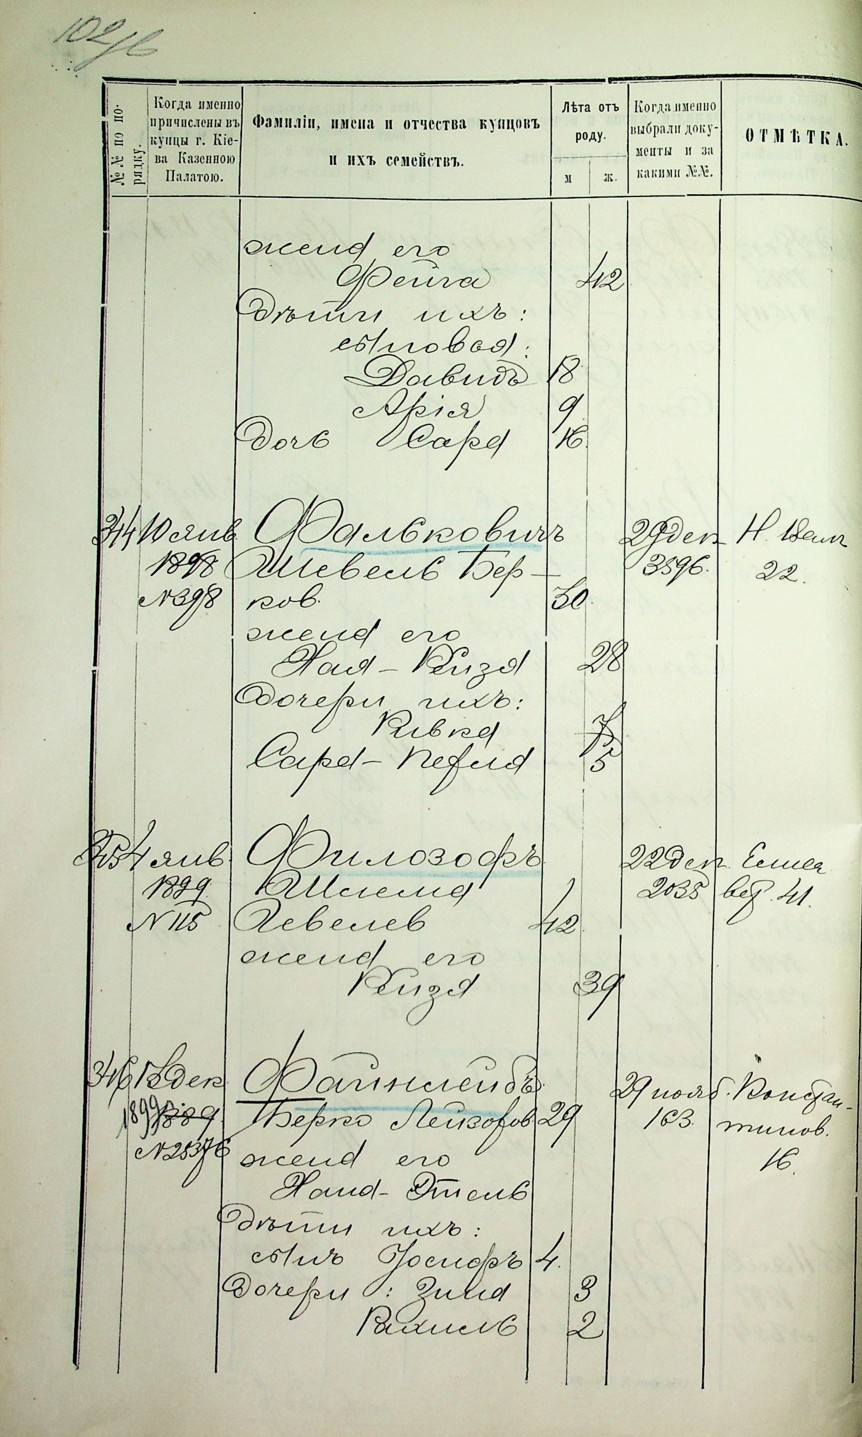 №№ по по-
рядку.
Когда именно
причислены въ
купцы г. Кіе-
ва Казенною
Палатою.
Фамиліи, имена и отчества купцовъ
и ихъ семействъ.
Лѣта отъ
роду.
м ж.
Когда именно
выбрали доку-
менты и за
какими №№.
ОТМѢТКА.
жена его
Фейга 42
Дѣти ихъ:
сыновья:
Давидъ 18
Арія 9
дочь Сара 16.
344 10 янв. Фальковичъ 29 дек.
1898 Шевель Бер- 3596. 22.
№398 ков. 30
жена его
Хая-Рейзя 28
Дочери ихъ:
Ривка 7
Сара- 5
345 4 янв. Филозофъ 22 дек. Елиса
1899 Шлема 2035 вет. 41.
№115 Гевелев 42
жена его
Рейзя 39
346 дек. Файнлейбъ 29 нояб. Констан-
1899 1889. Берко Лейзоров 29 163. тинов.
жена его 16.
Хана-Этель
Дѣти ихъ:
сынъ Іосифъ 4.
Дочери: Зина 3
Рахиль 2